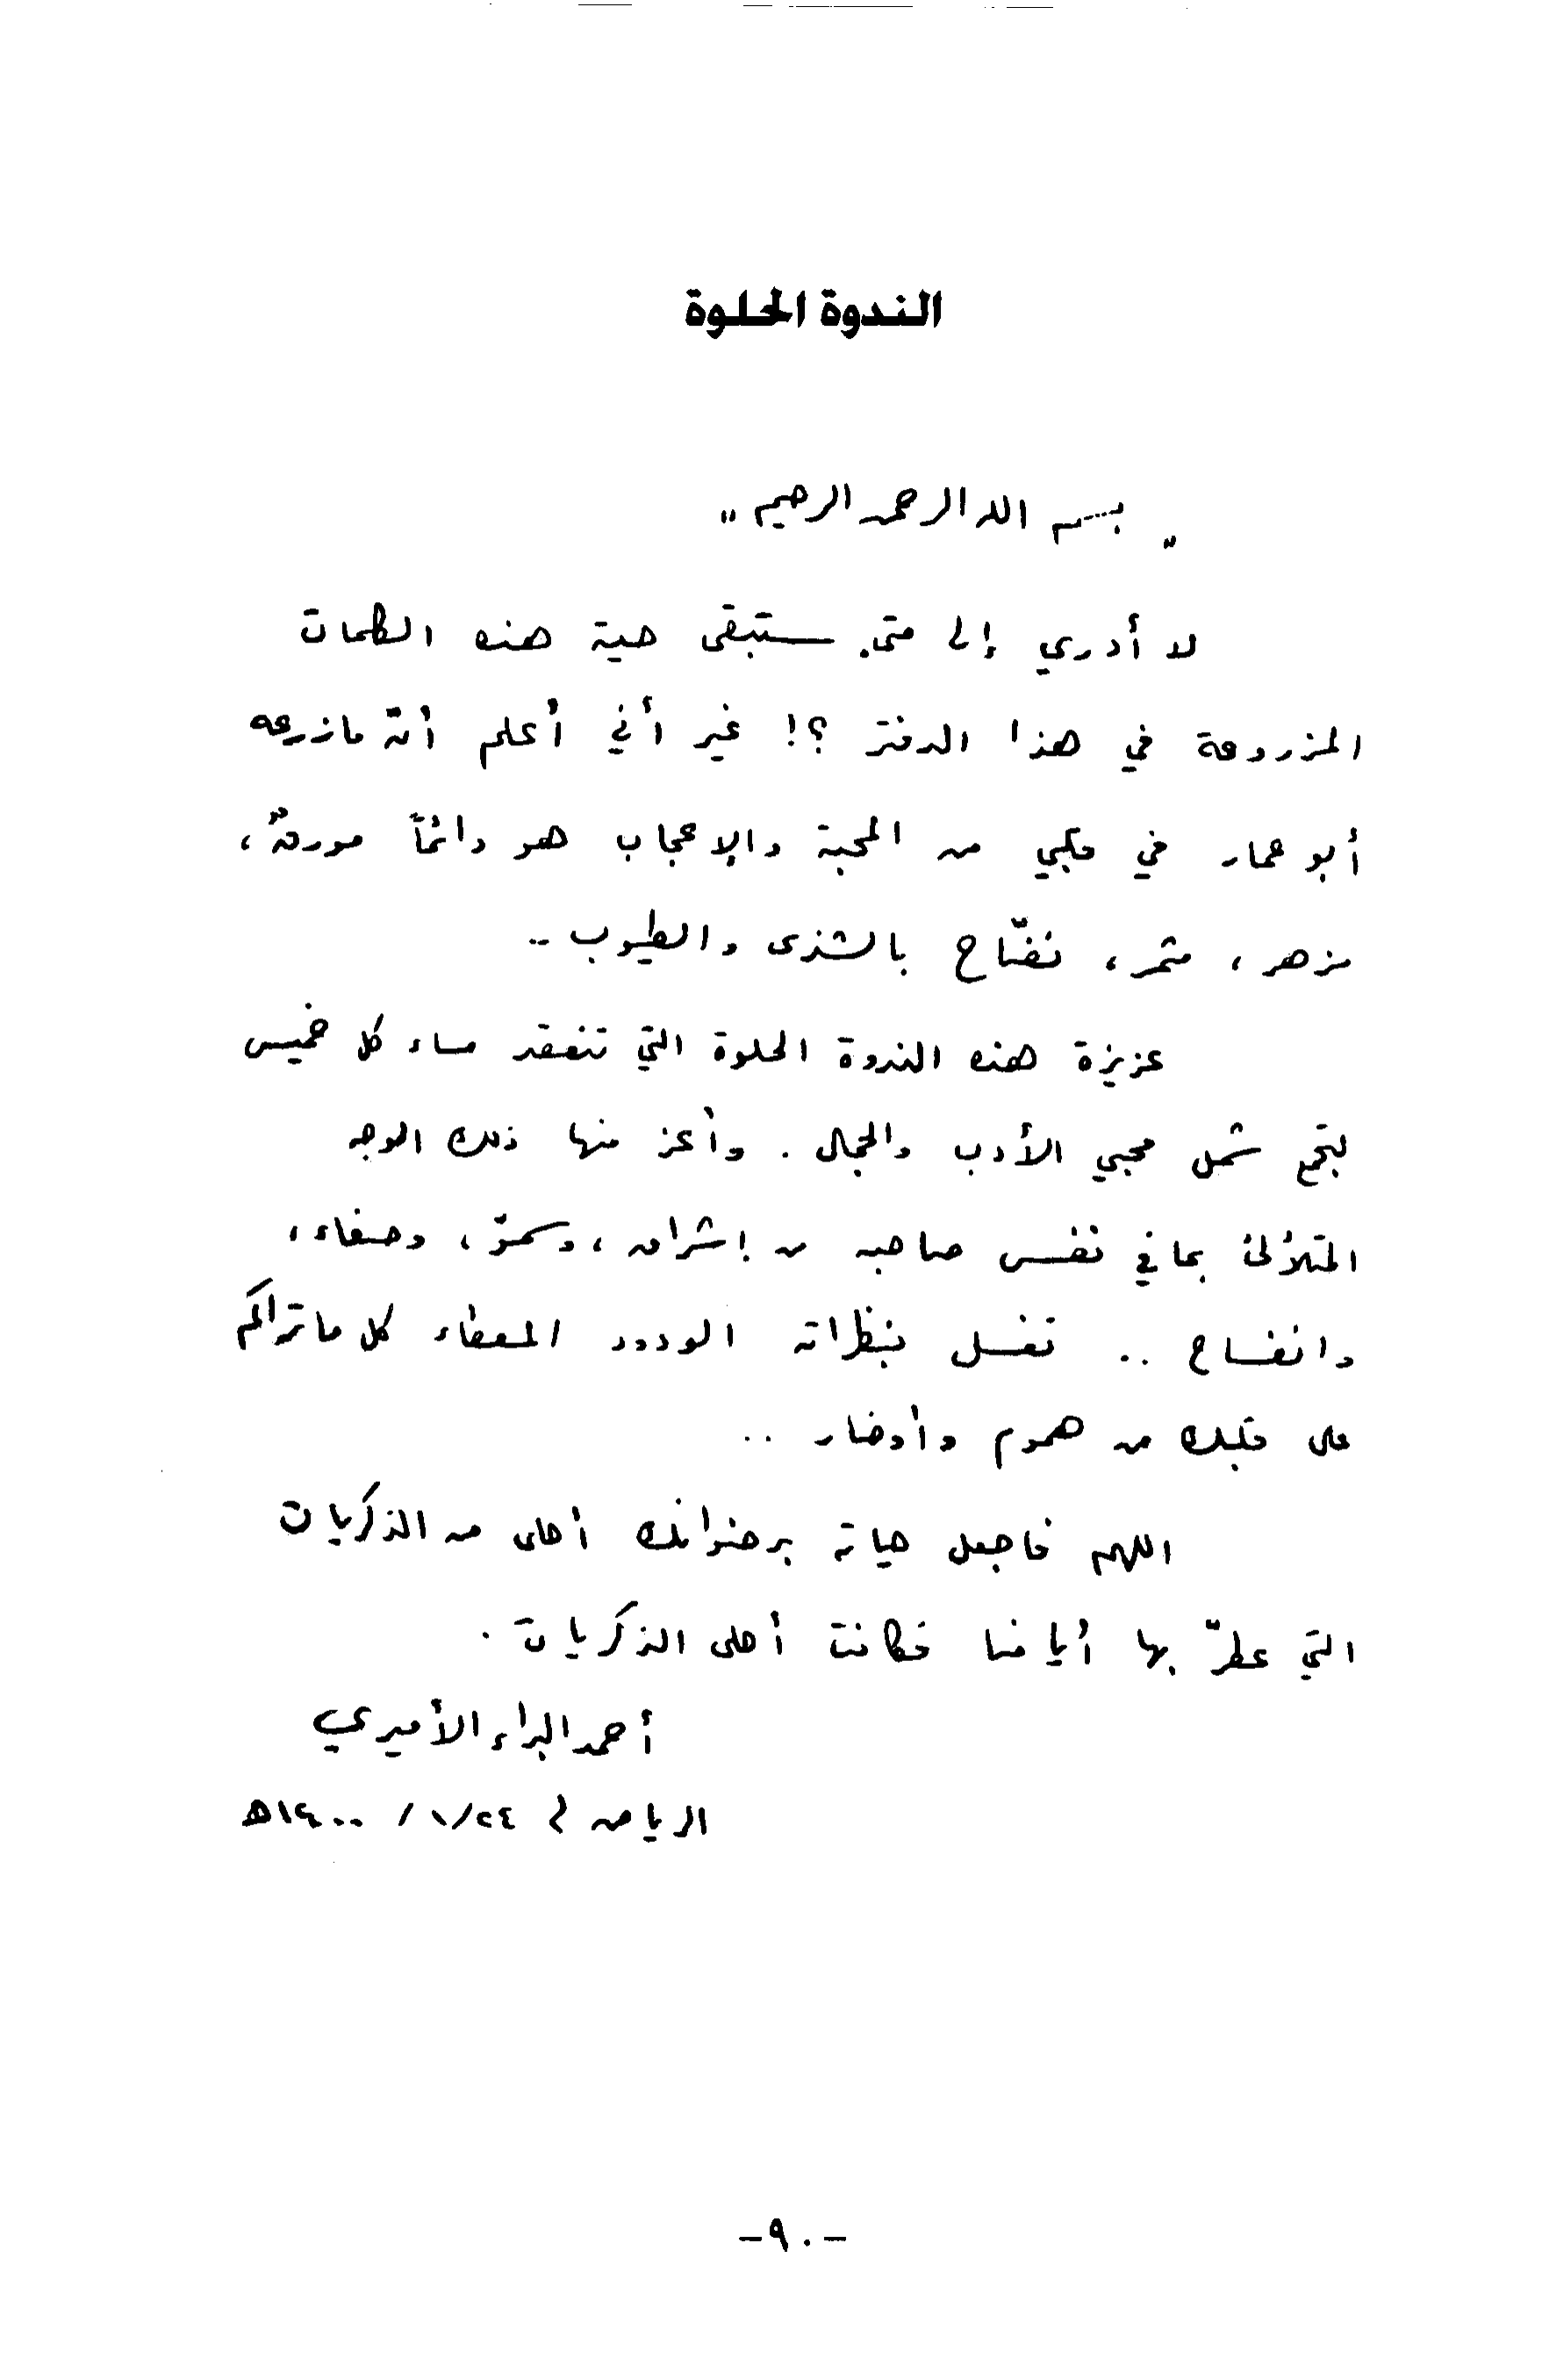 الندوة الحلوة
" بسم الله الرحمن الرحيم "
لا أدري إلى متى ستبقى حية هذه الكلمات
المزروعة في هذا الدفتر ؟! غير أني أعلم أنّ مازرعه
أبو عمار في قلبي من المحبة والإعجاب هو دائماً مورقٌ ،
مزهر ، مثمر ، نفّاح بالشذى والطيوب ..
عزيزة هذه الندوة الحلوة التي تنعقد مساء كل خميس
لتجمع شمل محبي الأدب والجمال . وأعز منها ذلك الوجه
المتلألئ بما في نفس صاحبه من إشراق ، وسموّ ، وصفاء ،
وانفساح .. تغسل بنظراته الودود المعطاء كل ماتراكم
على قلبك من هموم وأوضار ..
اللهم فاجعل حياته برضوانك أحلى من الذكريات
التي عطرّ بها أيامنا فكانت أحلى الذكريات .
أحمد البراء الأميري
الرياض في ٢٤/١/ ١٤٠٠هـ
-٩٠-